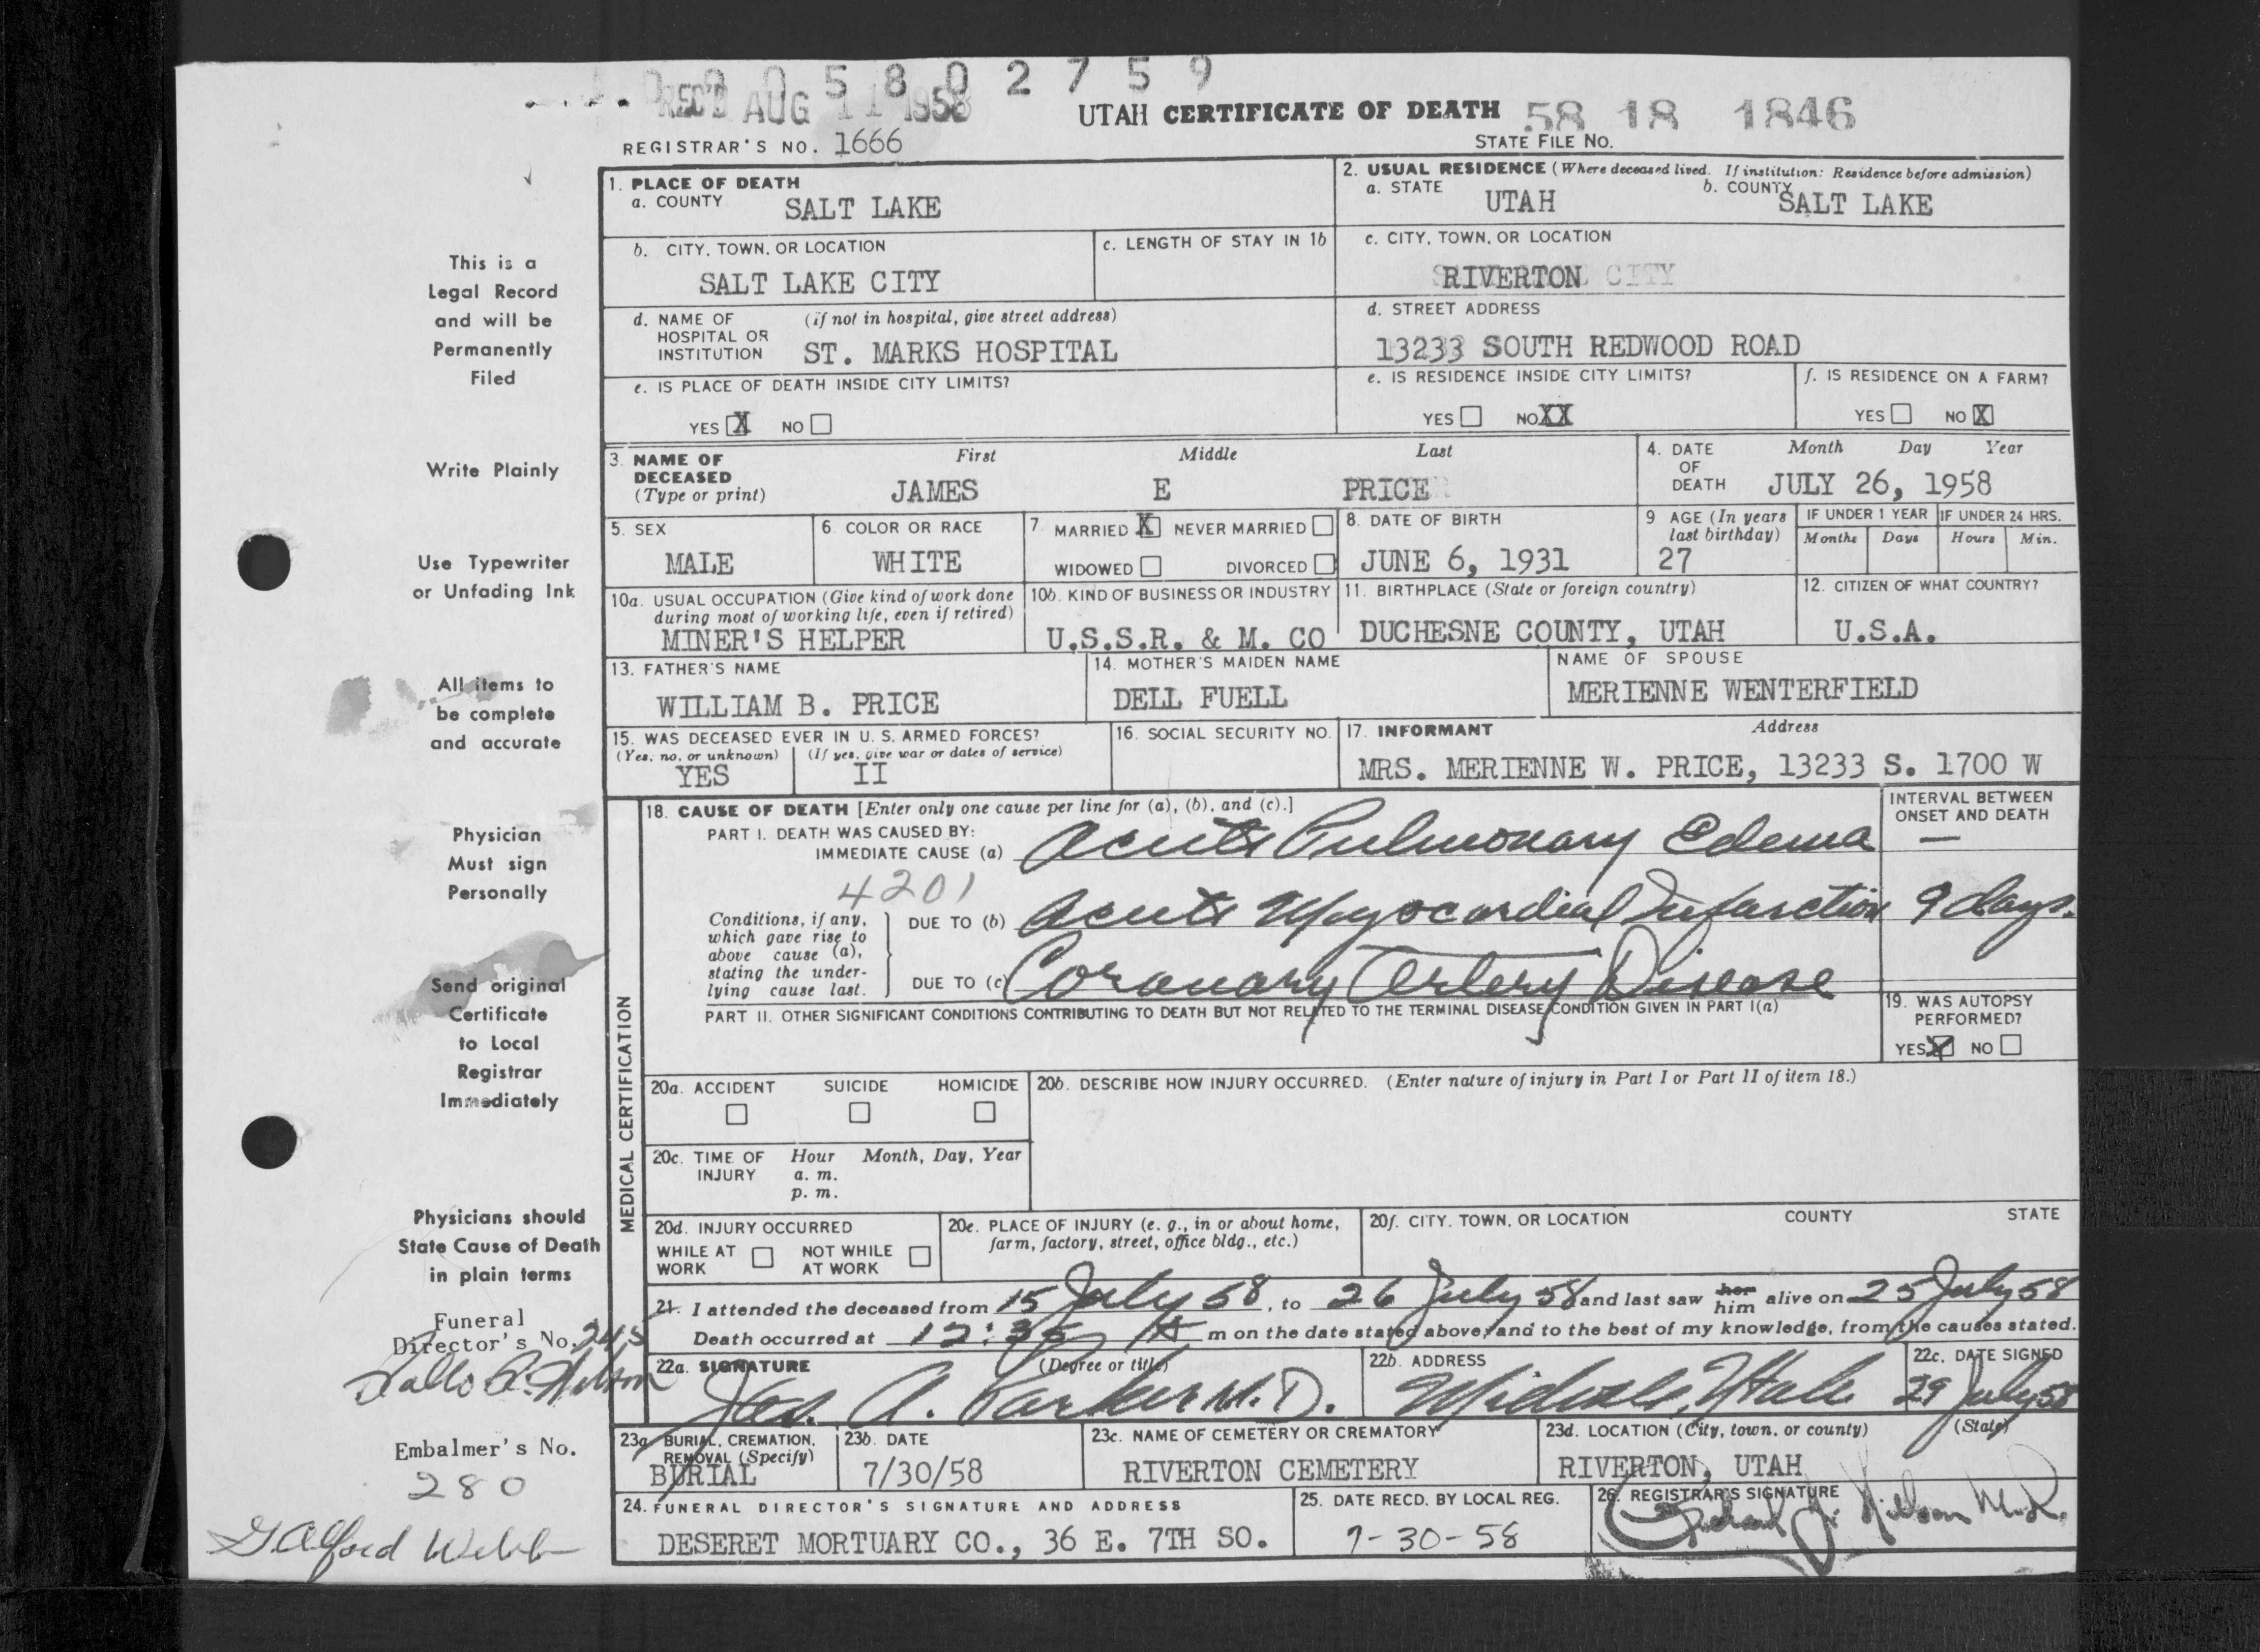 0 0 0 5 8 0 2 7 5 9
REC'D AUG 11 1958
UTAH CERTIFICATE OF DEATH 58 18 1846
REGISTRAR'S NO. 1666
STATE FILE NO.
1. PLACE OF DEATH
a. COUNTY SALT LAKE
2. USUAL RESIDENCE (Where deceased lived. If institution: Residence before admission)
a. STATE UTAH b. COUNTY SALT LAKE
b. CITY, TOWN, OR LOCATION
SALT LAKE CITY
c. LENGTH OF STAY IN 1b
c. CITY, TOWN, OR LOCATION
RIVERTON CITY
d. NAME OF (if not in hospital, give street address)
HOSPITAL OR
INSTITUTION ST. MARKS HOSPITAL
d. STREET ADDRESS
13233 SOUTH REDWOOD ROAD
e. IS PLACE OF DEATH INSIDE CITY LIMITS?
YES X NO
e. IS RESIDENCE INSIDE CITY LIMITS?
YES NO XX
f. IS RESIDENCE ON A FARM?
YES NO X
3. NAME OF
DECEASED
(Type or print)
First Middle Last
JAMES E PRICE
4. DATE
OF
DEATH
Month Day Year
JULY 26, 1958
5. SEX
MALE
6. COLOR OR RACE
WHITE
7. MARRIED X NEVER MARRIED
WIDOWED DIVORCED
8. DATE OF BIRTH
JUNE 6, 1931
9 AGE (In years
last birthday)
27
IF UNDER 1 YEAR
Months Days
IF UNDER 24 HRS.
Hours Min.
10a. USUAL OCCUPATION (Give kind of work done
during most of working life, even if retired)
MINER'S HELPER
10b. KIND OF BUSINESS OR INDUSTRY
U.S.S.R. & M. CO
11. BIRTHPLACE (State or foreign country)
DUCHESNE COUNTY, UTAH
12. CITIZEN OF WHAT COUNTRY?
U.S.A.
13. FATHER'S NAME
WILLIAM B. PRICE
14. MOTHER'S MAIDEN NAME
DELL FUELL
NAME OF SPOUSE
MERIENNE WENTERFIELD
15. WAS DECEASED EVER IN U. S. ARMED FORCES?
(Yes, no, or unknown) (If yes, give war or dates of service)
YES II
16. SOCIAL SECURITY NO.
17. INFORMANT Address
MRS. MERIENNE W. PRICE, 13233 S. 1700 W
MEDICAL CERTIFICATION
18. CAUSE OF DEATH [Enter only one cause per line for (a), (b), and (c).]
PART I. DEATH WAS CAUSED BY:
IMMEDIATE CAUSE (a) Acute Pulmonary Edema
INTERVAL BETWEEN
ONSET AND DEATH
—
4201
Conditions, if any,
which gave rise to
above cause (a),
stating the under-
lying cause last.
DUE TO (b) Acute Myocardial Infarction 9 days.
DUE TO (c) Coronary Artery Disease
PART II. OTHER SIGNIFICANT CONDITIONS CONTRIBUTING TO DEATH BUT NOT RELATED TO THE TERMINAL DISEASE CONDITION GIVEN IN PART I(a)
19. WAS AUTOPSY
PERFORMED?
YES X NO
20a. ACCIDENT SUICIDE HOMICIDE
20b. DESCRIBE HOW INJURY OCCURRED. (Enter nature of injury in Part I or Part II of item 18.)
20c. TIME OF Hour Month, Day, Year
INJURY a. m.
p. m.
20d. INJURY OCCURRED
WHILE AT
WORK
NOT WHILE
AT WORK
20e. PLACE OF INJURY (e. g., in or about home,
farm, factory, street, office bldg., etc.)
20f. CITY, TOWN, OR LOCATION COUNTY STATE
21. I attended the deceased from 15 July 58, to 26 July 58 and last saw her him alive on 25 July 58
Death occurred at 12:35 A m on the date stated above, and to the best of my knowledge, from the causes stated.
22a. SIGNATURE (Degree or title)
Jas. A. Parker M.D.
22b. ADDRESS
Midvale, Utah
22c. DATE SIGNED
29 July 58
23a BURIAL, CREMATION,
REMOVAL (Specify)
BURIAL
23b. DATE
7/30/58
23c. NAME OF CEMETERY OR CREMATORY
RIVERTON CEMETERY
23d. LOCATION (City, town, or county) (State)
RIVERTON, UTAH
24. FUNERAL DIRECTOR'S SIGNATURE AND ADDRESS
DESERET MORTUARY CO., 36 E. 7TH SO.
25. DATE RECD. BY LOCAL REG.
7-30-58
26. REGISTRAR'S SIGNATURE
This is a
Legal Record
and will be
Permanently
Filed
Write Plainly
Use Typewriter
or Unfading Ink
All items to
be complete
and accurate
Physician
Must sign
Personally
Send original
Certificate
to Local
Registrar
Immediately
Physicians should
State Cause of Death
in plain terms
Funeral
Director's No. 245
Embalmer's No.
280
G Alford Webb